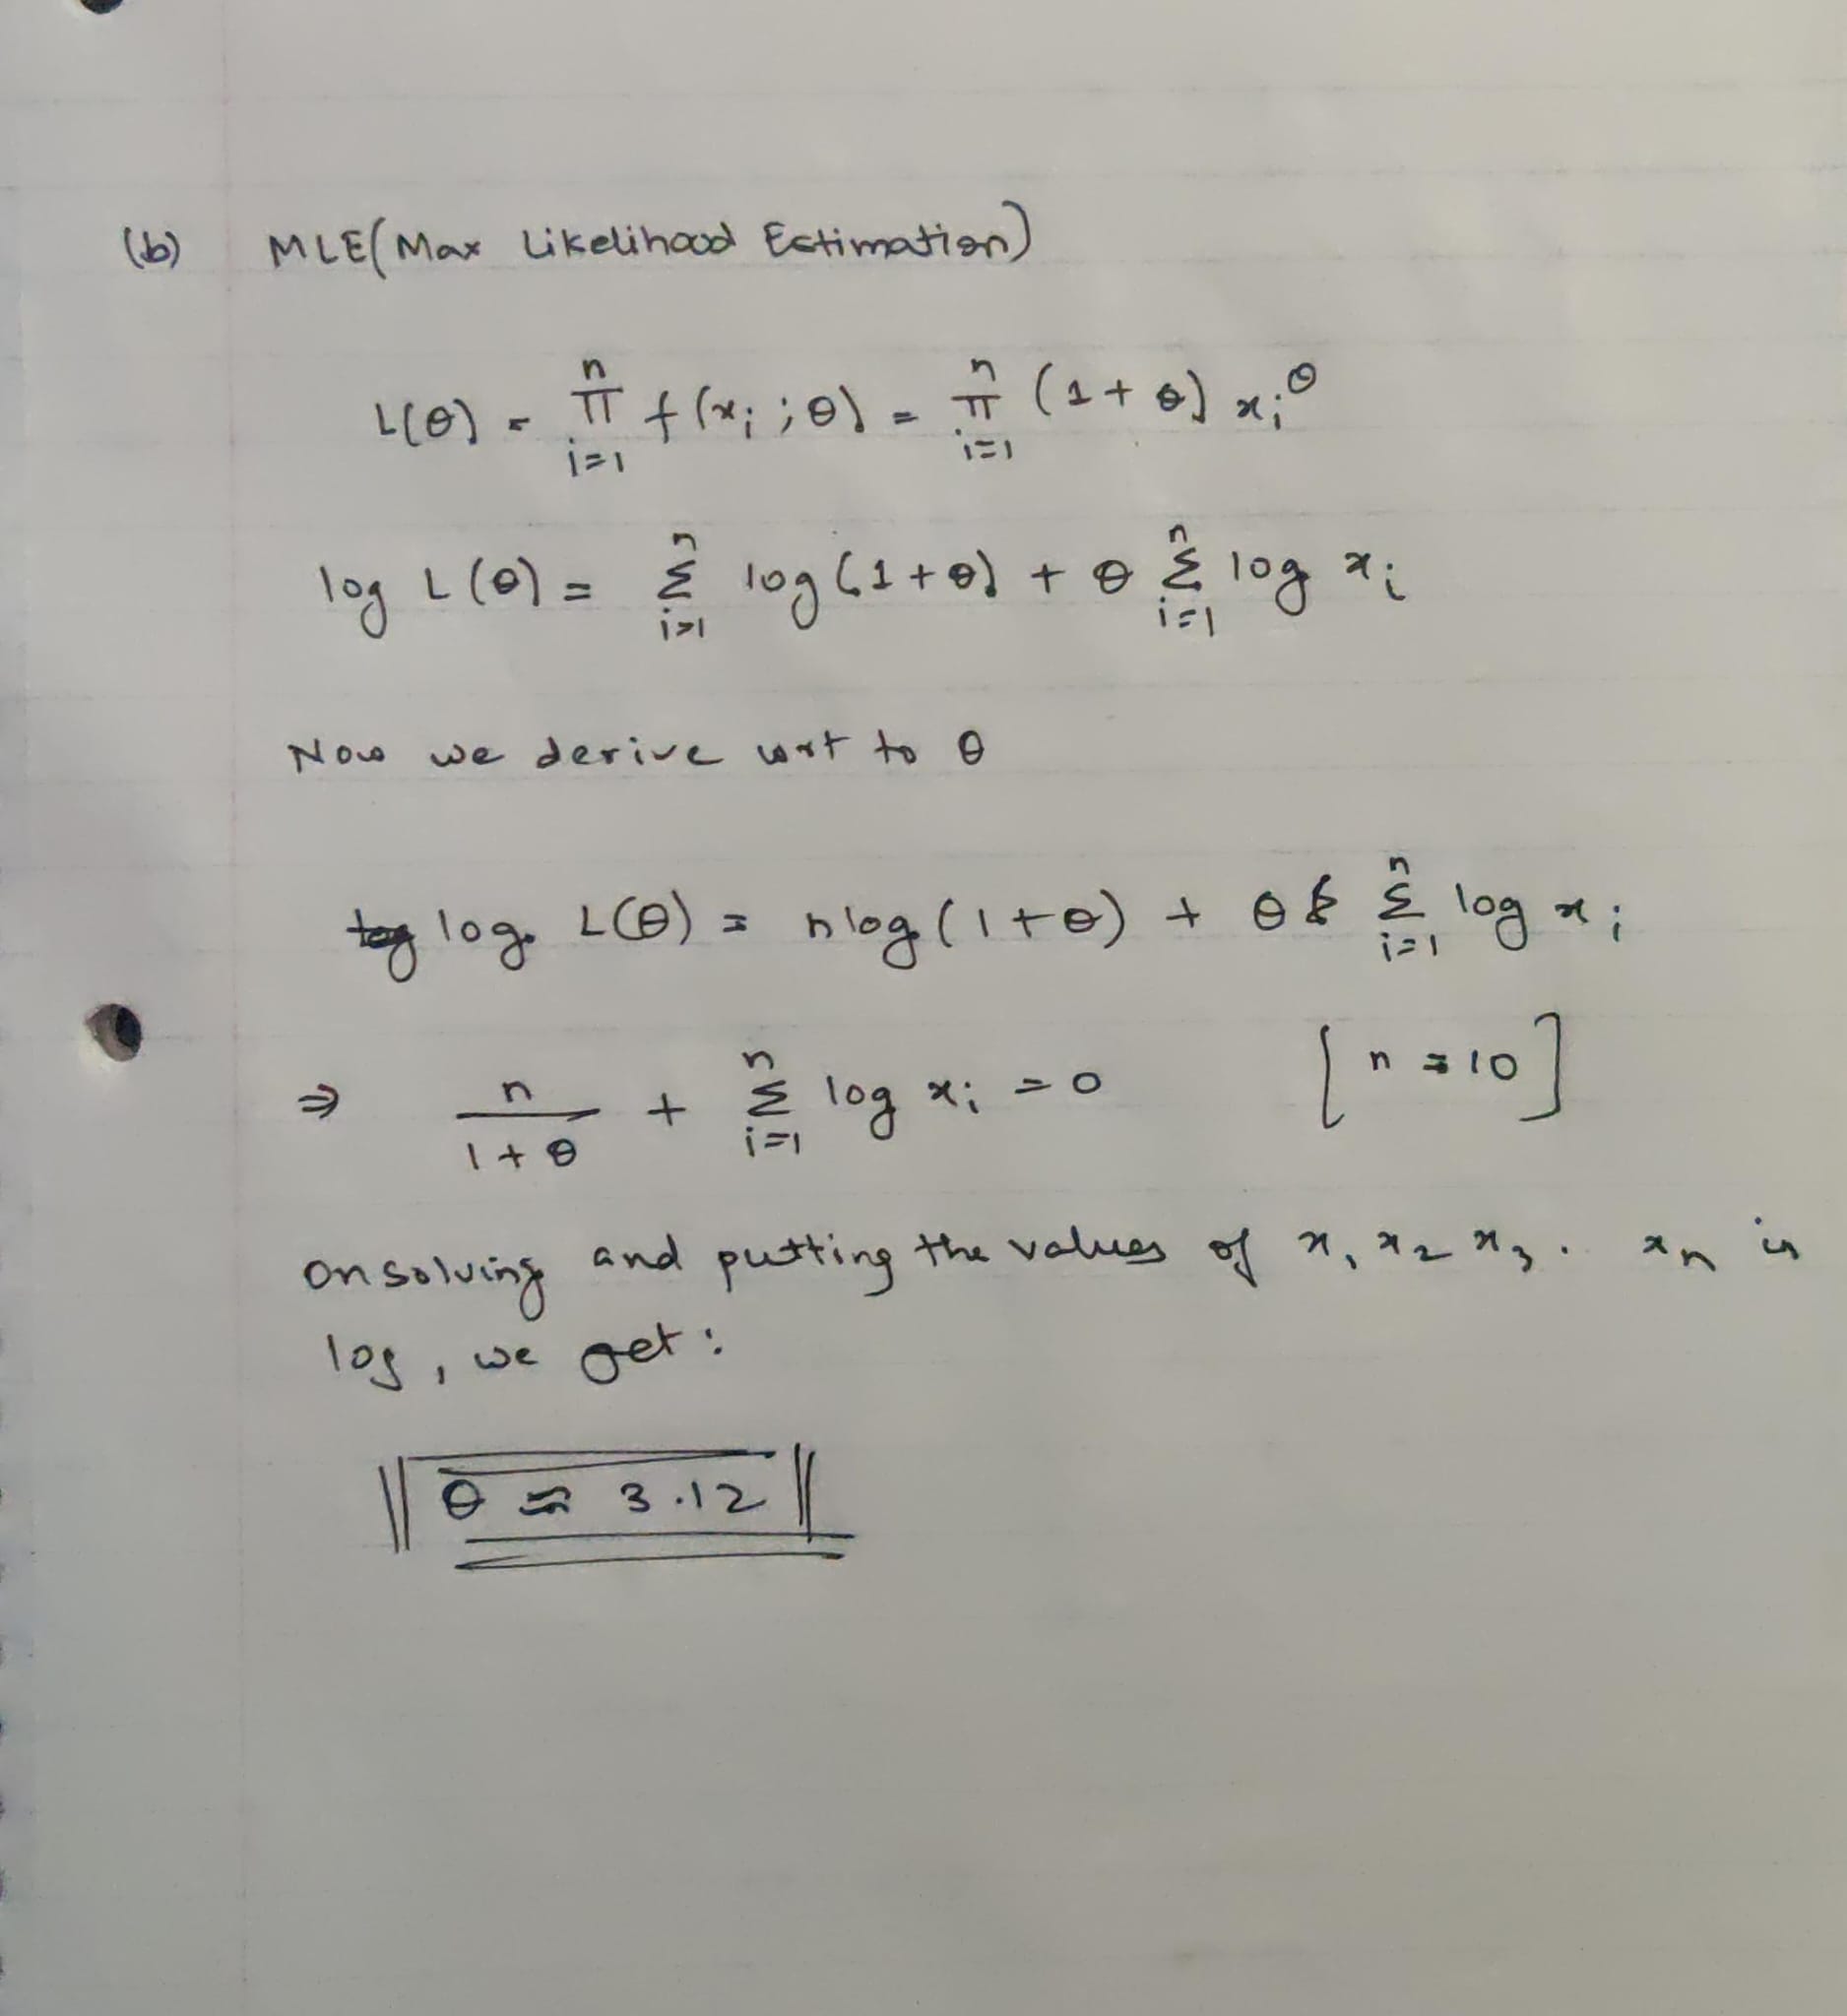 (b) MLE(Max Likelihood Estimation)
L(θ) = ∏ᵢ₌₁ⁿ f(xᵢ ; θ) = ∏ᵢ₌₁ⁿ (1 + θ) xᵢ^θ
log L(θ) = Σᵢ₌₁ⁿ log(1 + θ) + θ Σᵢ₌₁ⁿ log xᵢ
Now we derive wrt to θ
log L(θ) = n log(1 + θ) + θ Σᵢ₌₁ⁿ log xᵢ
⇒ n/(1 + θ) + Σᵢ₌₁ⁿ log xᵢ = 0 [n = 10]
On solving and putting the values of x₁ x₂ x₃ .. xₙ in
log, we get :
θ ≈ 3.12